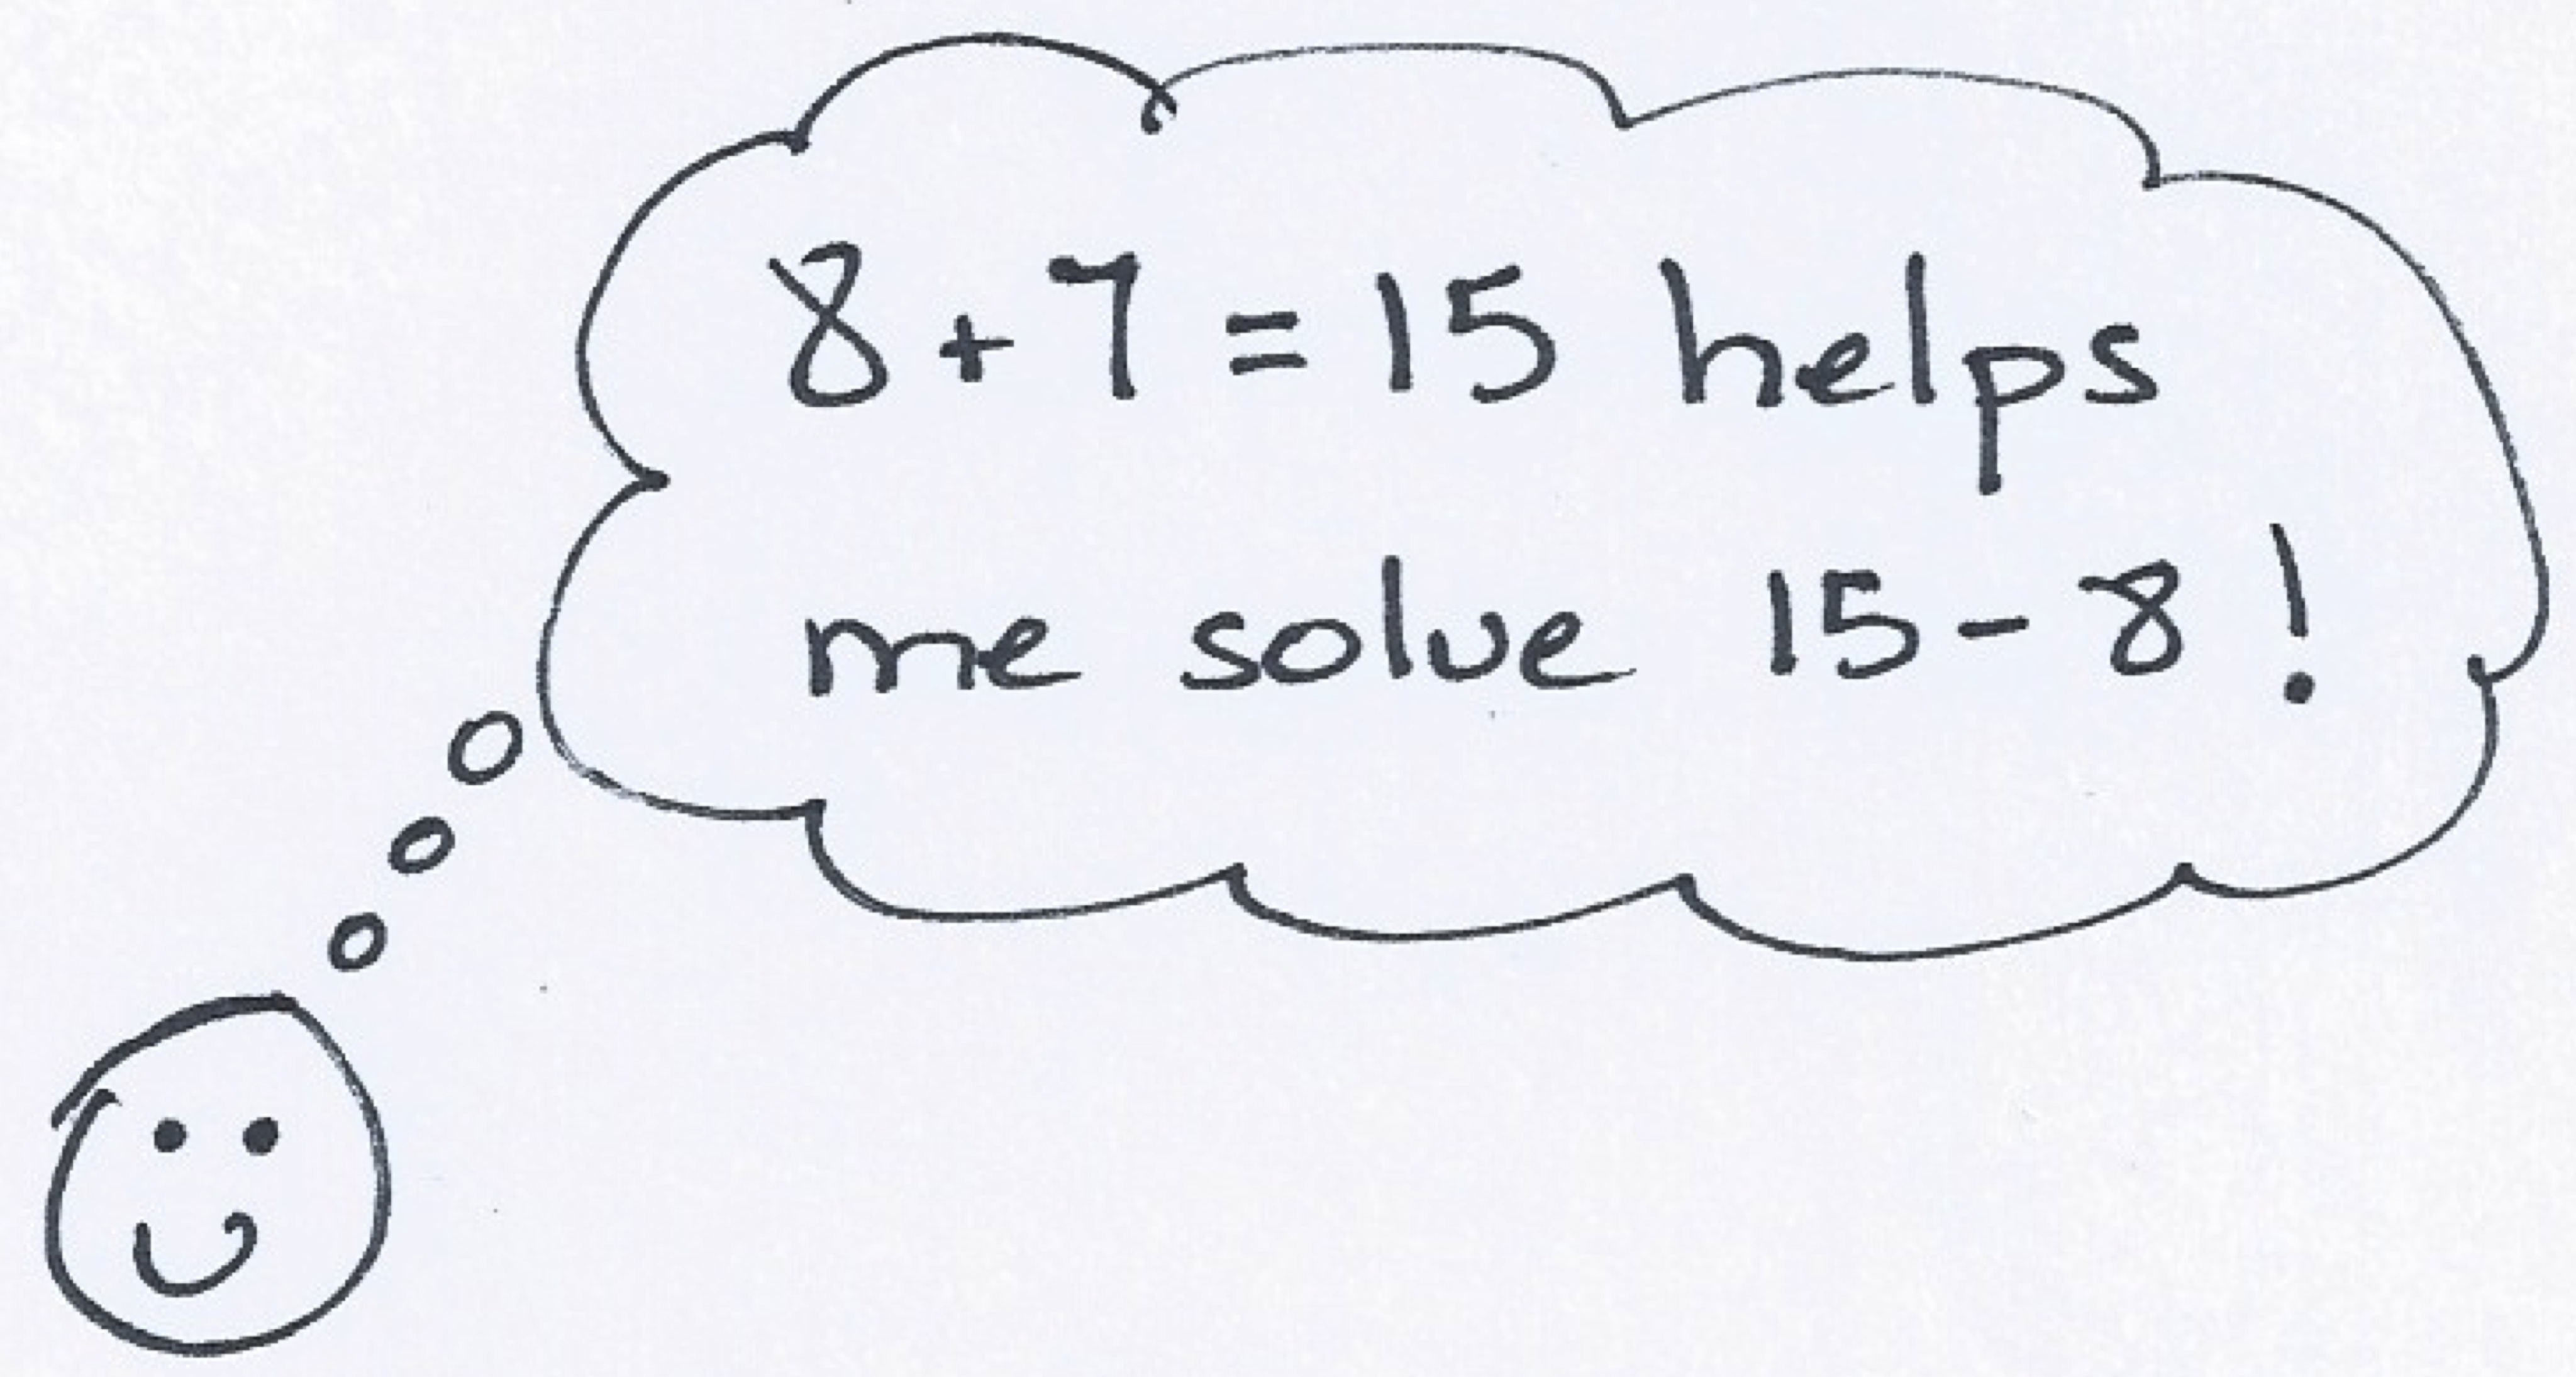 8 + 7 = 15 helps
me solve 15 - 8 !